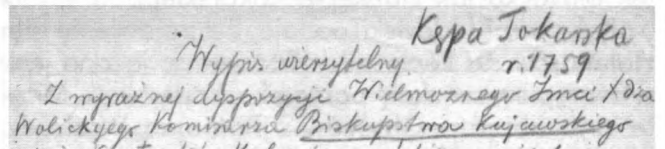 Kępa Tokarska
Wypis wierzytelny r. 1759
Z wyraźnej dyspozycji Wielmoznego Imci Xdza
Wolickyego Kominarza Biskupstwa Kujawskiego